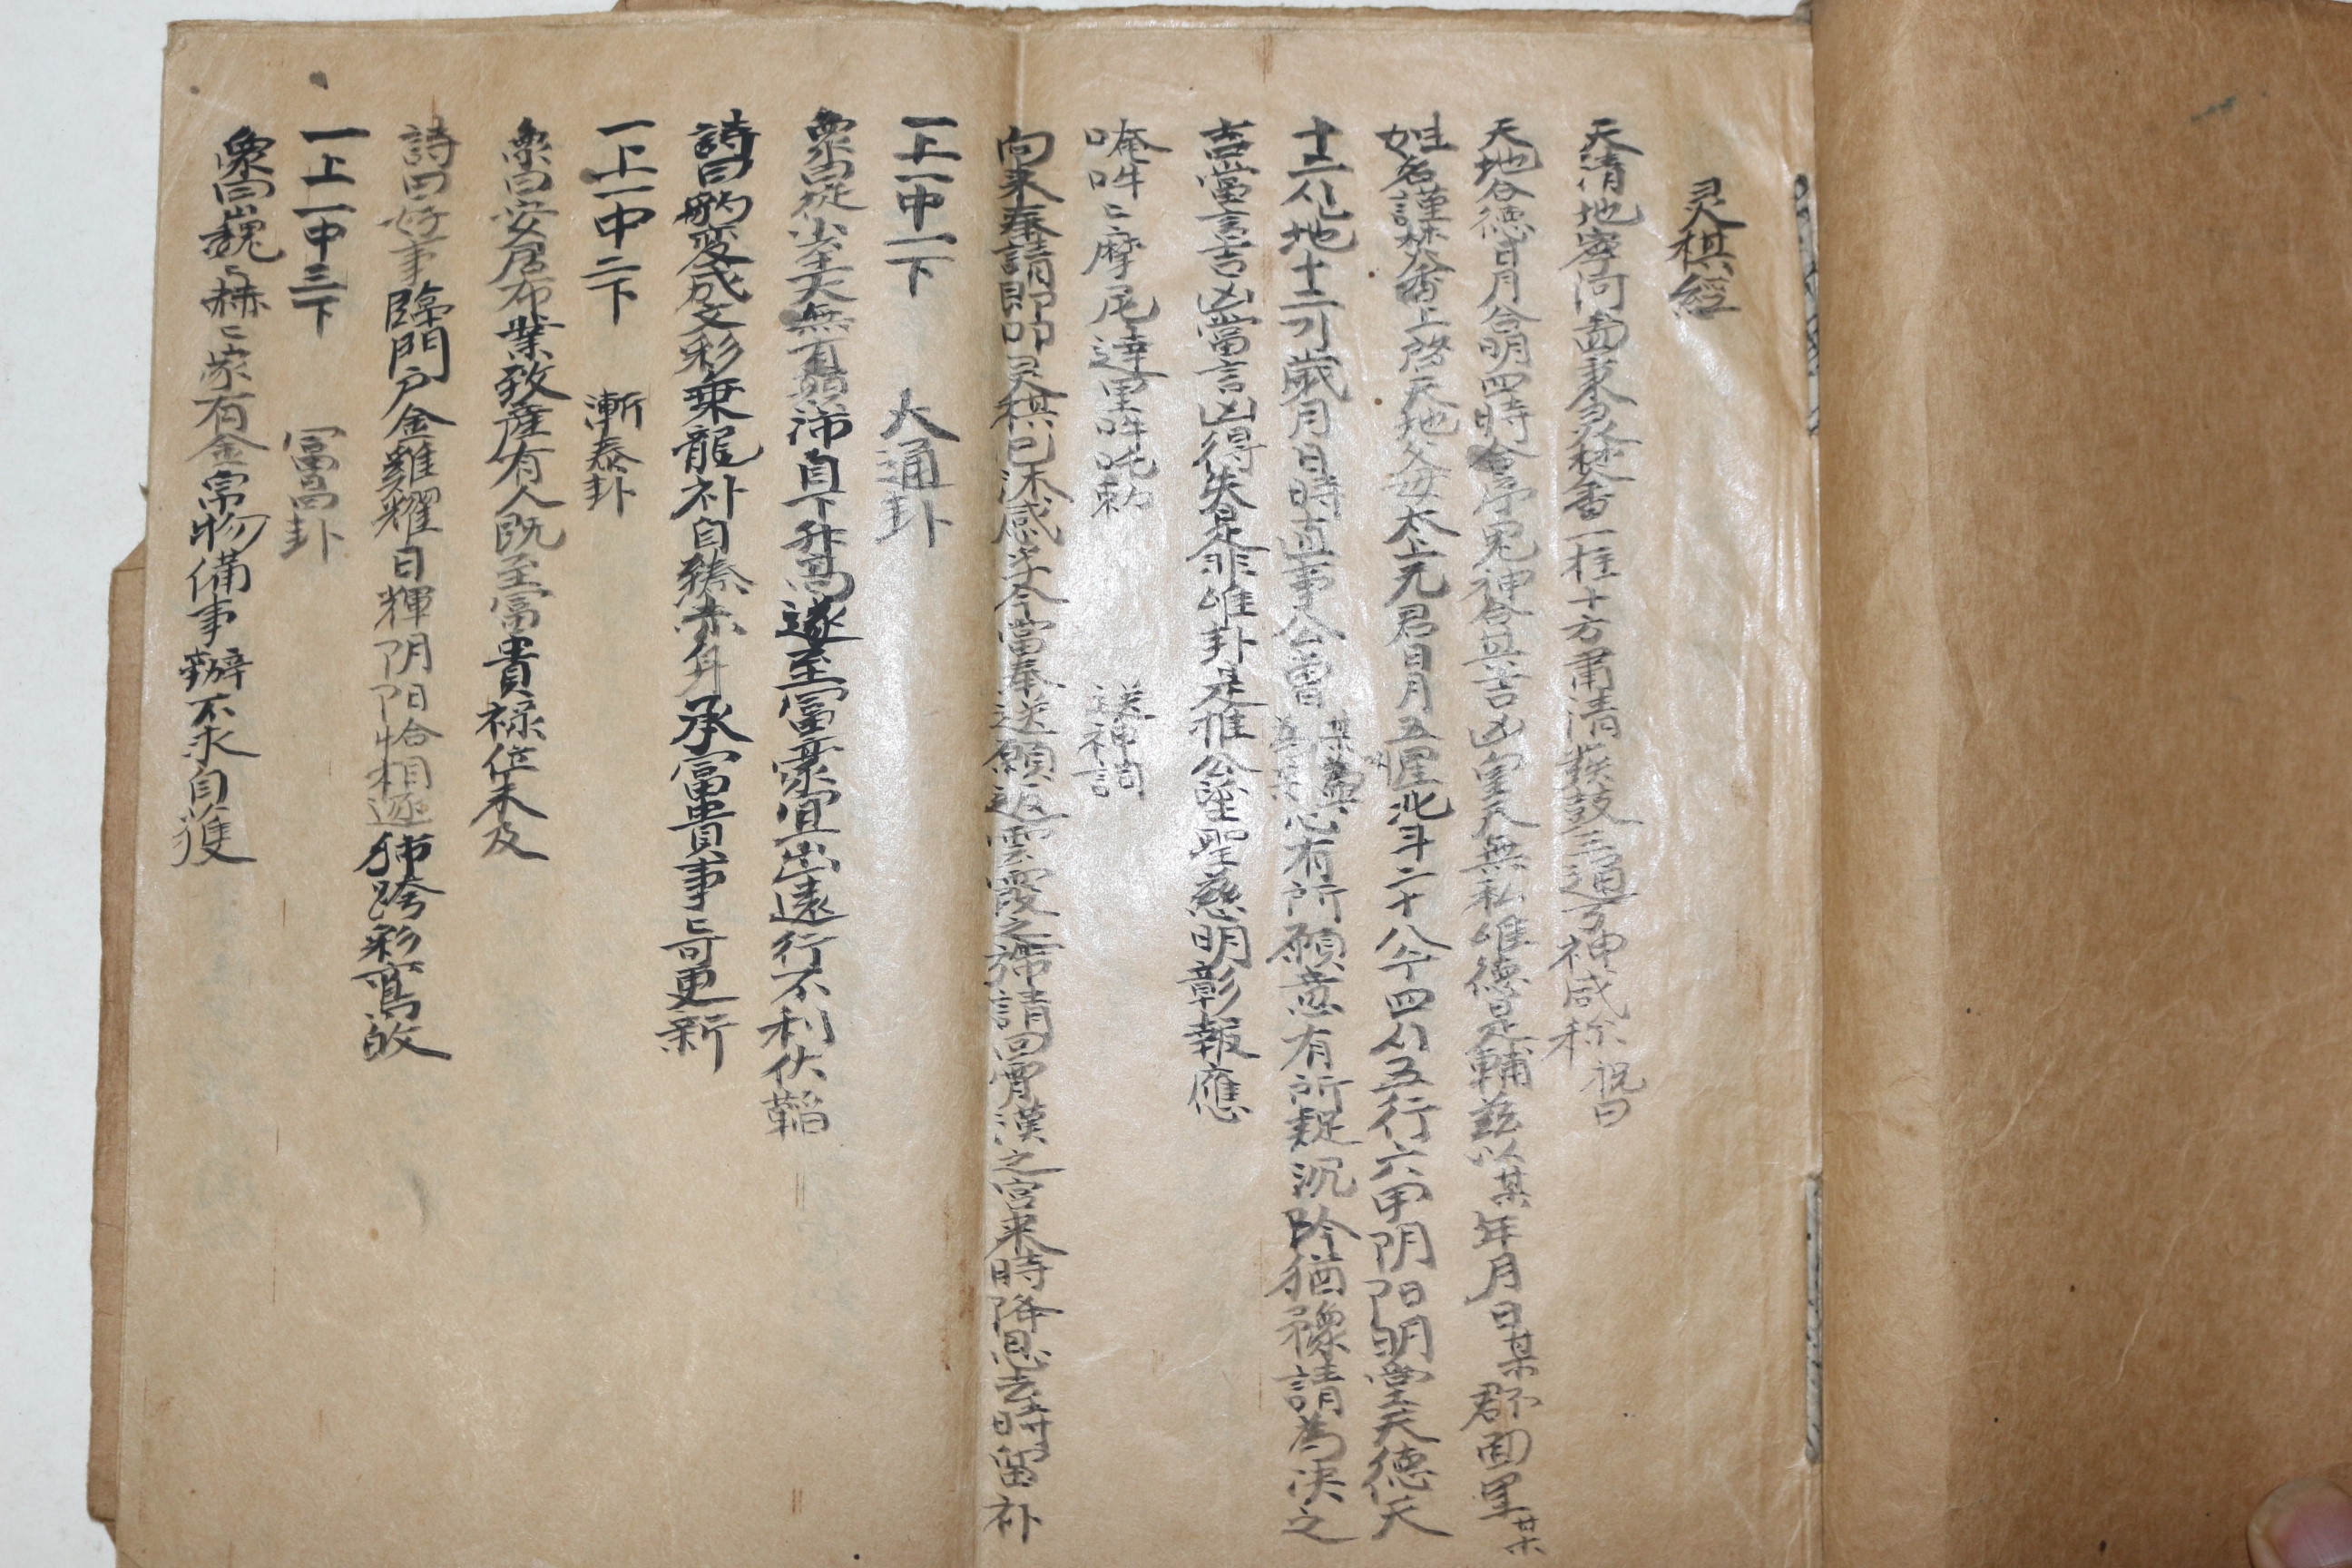 灵棋經
天清地寧河啚秉灵焚香一炷十方肅清鼓三通万神咸称祝曰
天地合德日月合明四時合序鬼神合其吉凶皇天無私唯德是輔玆以某年月日某郡面里某
姓名謹焚香上啓天地父母太上元君日月五星北斗二十八宿四仙五行六甲阴阳明堂天德天
十二仙地十二可歲月日時直事公曹某為某心有所願意有所疑沉吟猶豫請為决之
吉當言吉凶當言凶得失是非唯卦是推公望聖慈明彰報應
唵吽〻摩尾達里吽吒勑 送神詞
向来奉請即叩灵棋已沐感孚今當奉送願返雲霞之請回霄漢之宮来時降恩去時留补
一上一中一下 大通卦
象曰從小至大無有顛沛自下升高遂至富豪宜出遠行不利伏韜
詩曰豹変成文彩乗龍补自臻赤身承富貴事〻可更新
一上一中二下 漸泰卦
象曰安居布業致産有人既至富貴禄位未及
詩曰好事臨門戶金雞耀日輝阴阳恰相逐跨彩鸞
一上一中三下 冨昌卦
象曰巍〻赫〻家有金帛物備事辦不求自獲